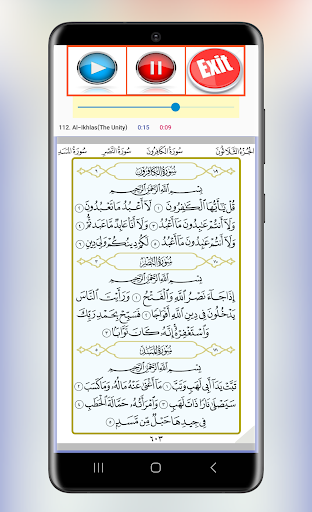 Exit
112. Al-Ikhlas(The Unity) 0:15 0:09
الجزء الثلاثون سورة الكافرون سورة النصر سورة المسد
سورة الكافرون
بسم الله الرحمن الرحيم
قل يٰأيها الكٰفرون ١ لا أعبد ما تعبدون ٢
ولا أنتم عٰبدون ما أعبد ٣ ولا أنا عابد ما عبدتم ٤
ولا أنتم عٰبدون ما أعبد ٥ لكم دينكم ولي دين ٦
سورة النصر
بسم الله الرحمن الرحيم
إذا جاء نصر الله والفتح ١ ورأيت الناس
يدخلون في دين الله أفواجا ٢ فسبح بحمد ربك
واستغفره إنه كان توابا ٣
سورة المسد
بسم الله الرحمن الرحيم
تبت يدا أبي لهب وتب ١ ما أغنى عنه ماله وما كسب ٢
سيصلى نارا ذات لهب ٣ وامرأته حمالة الحطب ٤
في جيدها حبل من مسد ٥
٦٠٣